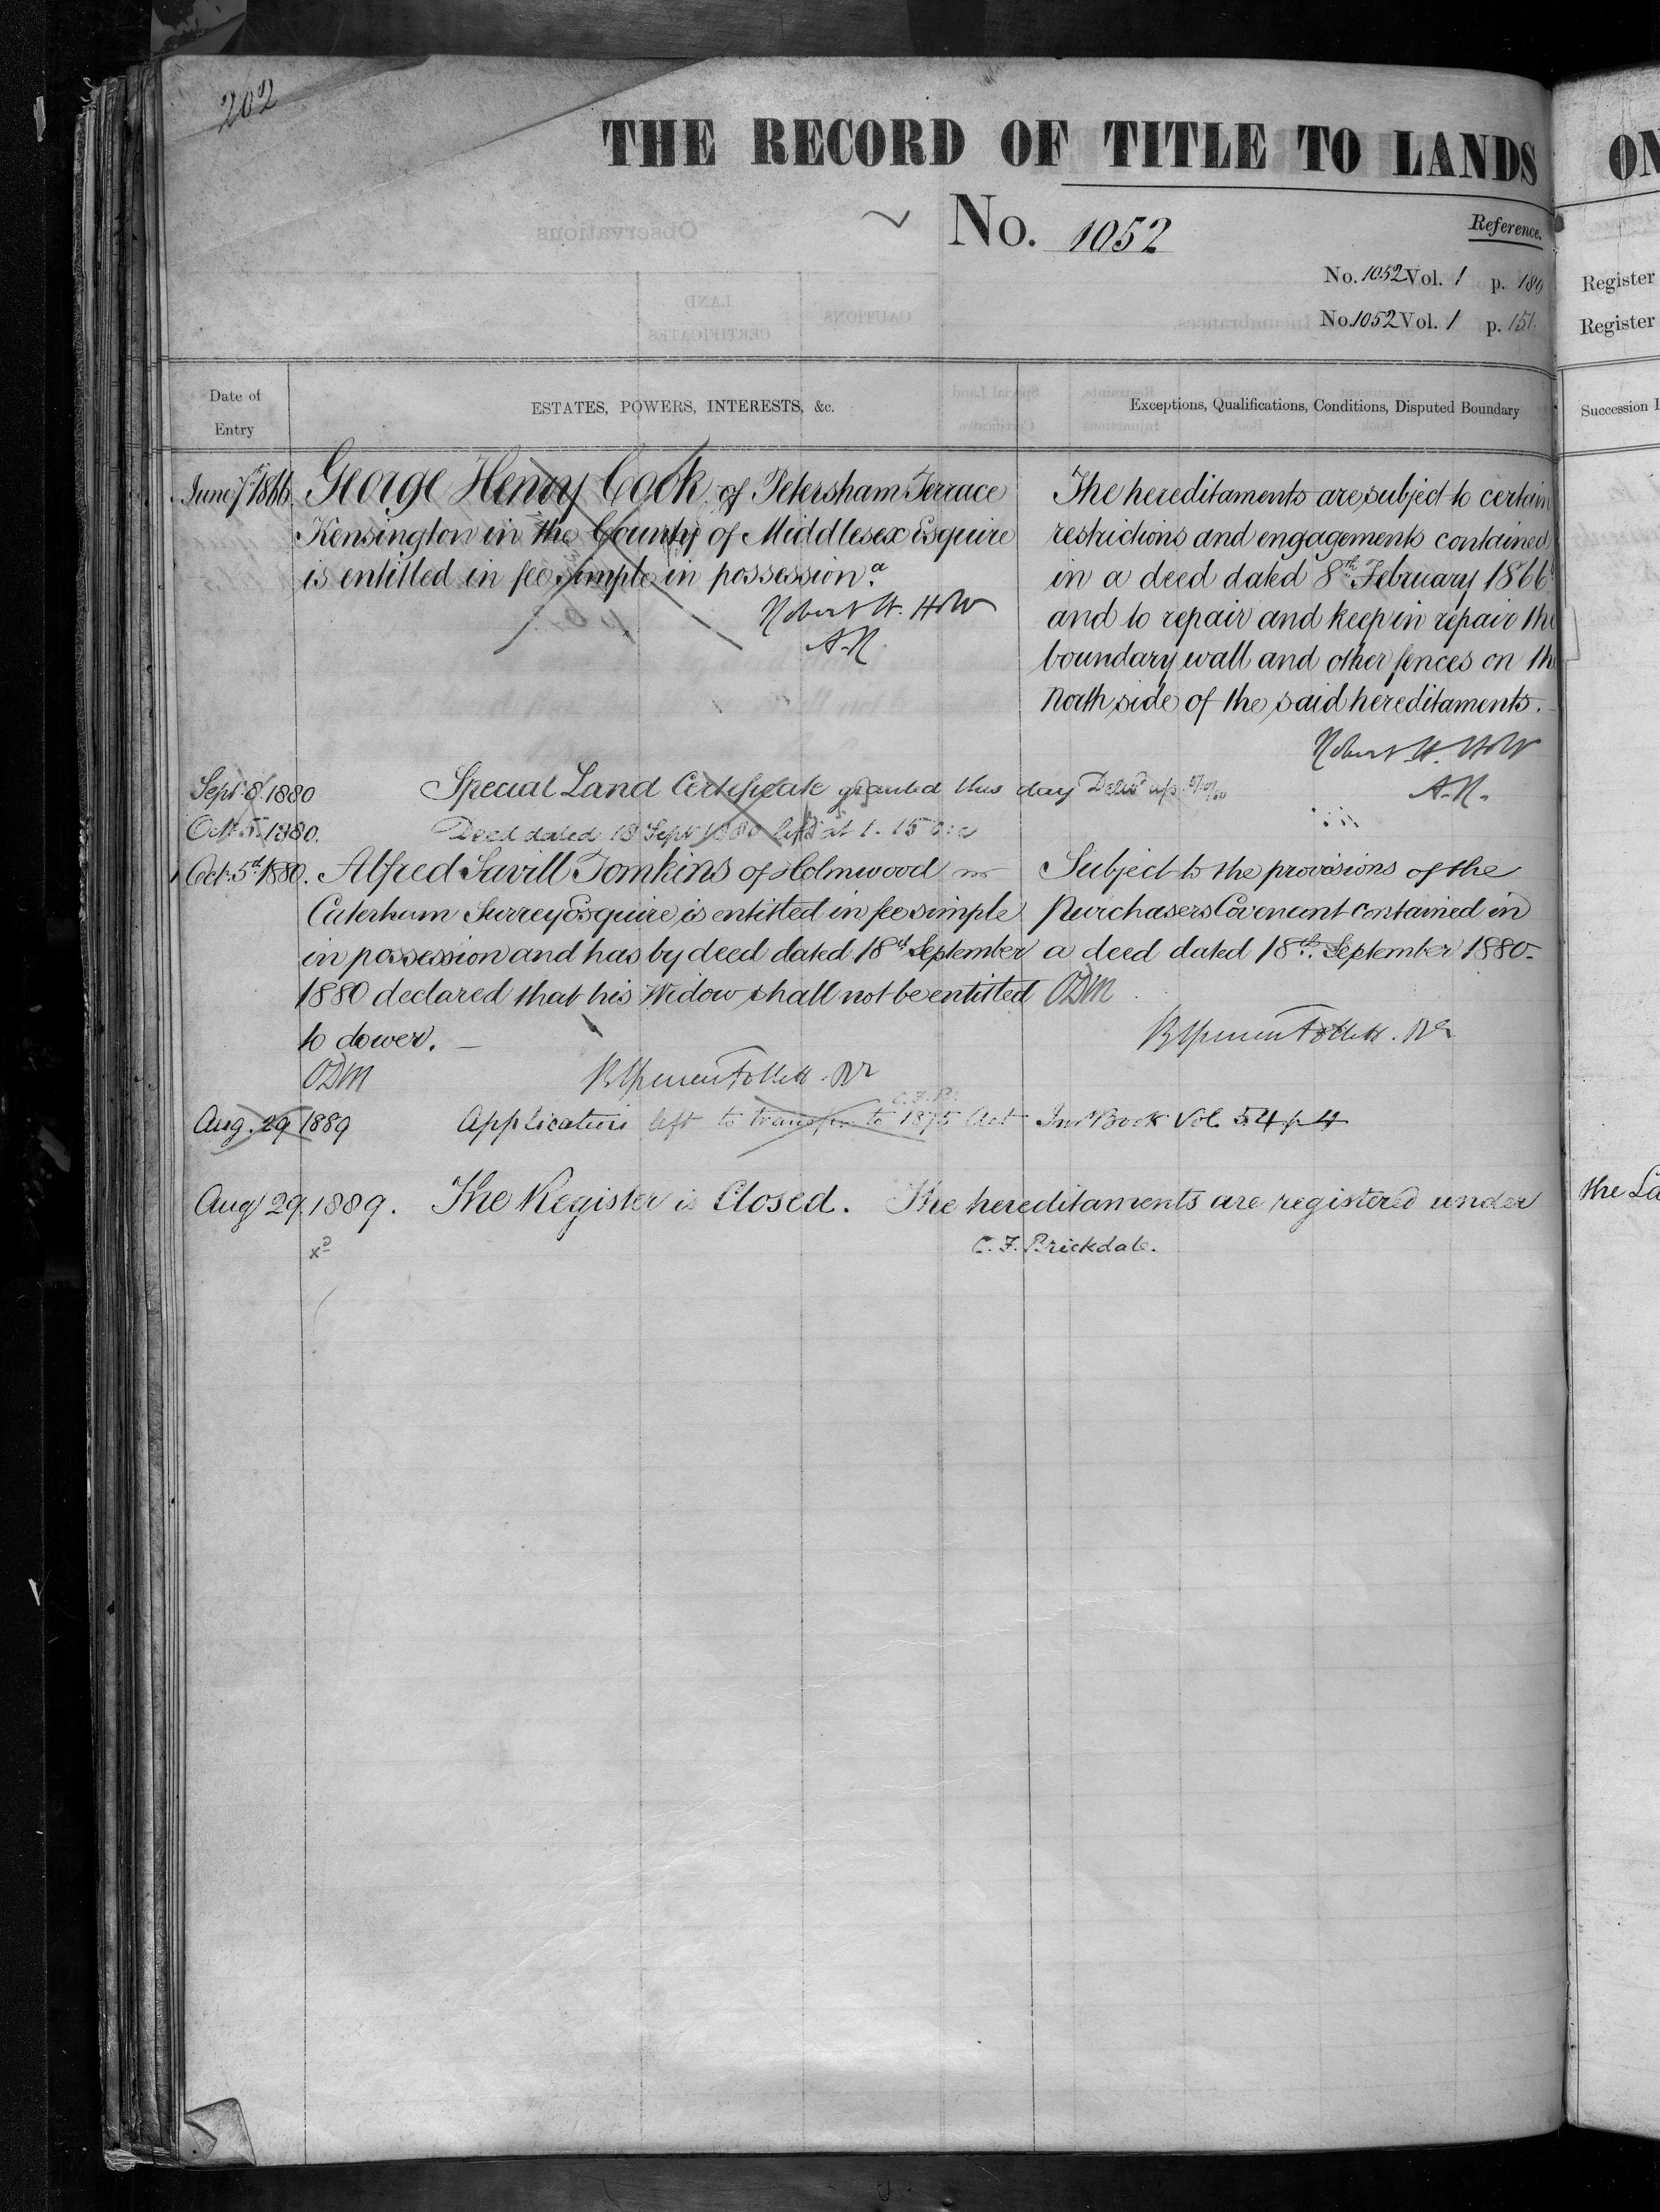 202
THE RECORD OF TITLE TO LANDS
ON
No. 1052
Reference.
No. 1052 Vol. 1 p. 189
Register
No 1052 Vol. 1 p. 151.
Register
Date of Entry
ESTATES, POWERS, INTERESTS, &c.
Exceptions, Qualifications, Conditions, Disputed Boundary
Succession
June 7th 1866. George Henry Cook of Petersham Terrace
Kensington in the County of Middlesex Esquire
is entitled in fee simple in possession.
Robert H. Holt
A.N.
The hereditaments are subject to certain
restrictions and engagements contained
in a deed dated 8th February 1866
and to repair and keep in repair the
boundary wall and other fences on the
North side of the said hereditaments.
Robert H. Holt
A.N.
Sept 8. 1880 Special Land Certificate granted this day
Oct 5. 1880. Deed dated 18 Sept 1880 left at 1.15
Oct. 5th 1880. Alfred Savill Tomkins of Holmwood
Caterham Surrey Esquire is entitled in fee simple
in possession and has by deed dated 18th September
1880 declared that his Widow shall not be entitled
to dower.
ODM
Subject to the provisions of the
Purchasers Covenant contained in
a deed dated 18th September 1880
ODM
Aug. 29 1889 Application left to transfer to 1875 Act Inst Book Vol. 54 p 4
C.F.B.
Aug 29. 1889. The Register is Closed. The hereditaments are registered under
the La
C. F. Brickdale.